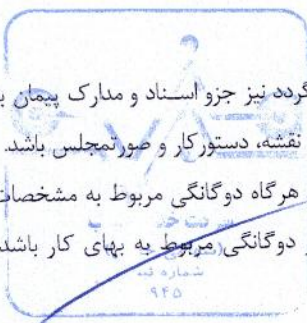 گردد نیز جزو اسناد و مدارک پیمان
نقشه، دستورکار و صورتمجلس باشد.
هرگاه دوگانگی مربوط به مشخصات
دوگانگی مربوط به بهای کار باشد
شماره ثبت
۹۴۵